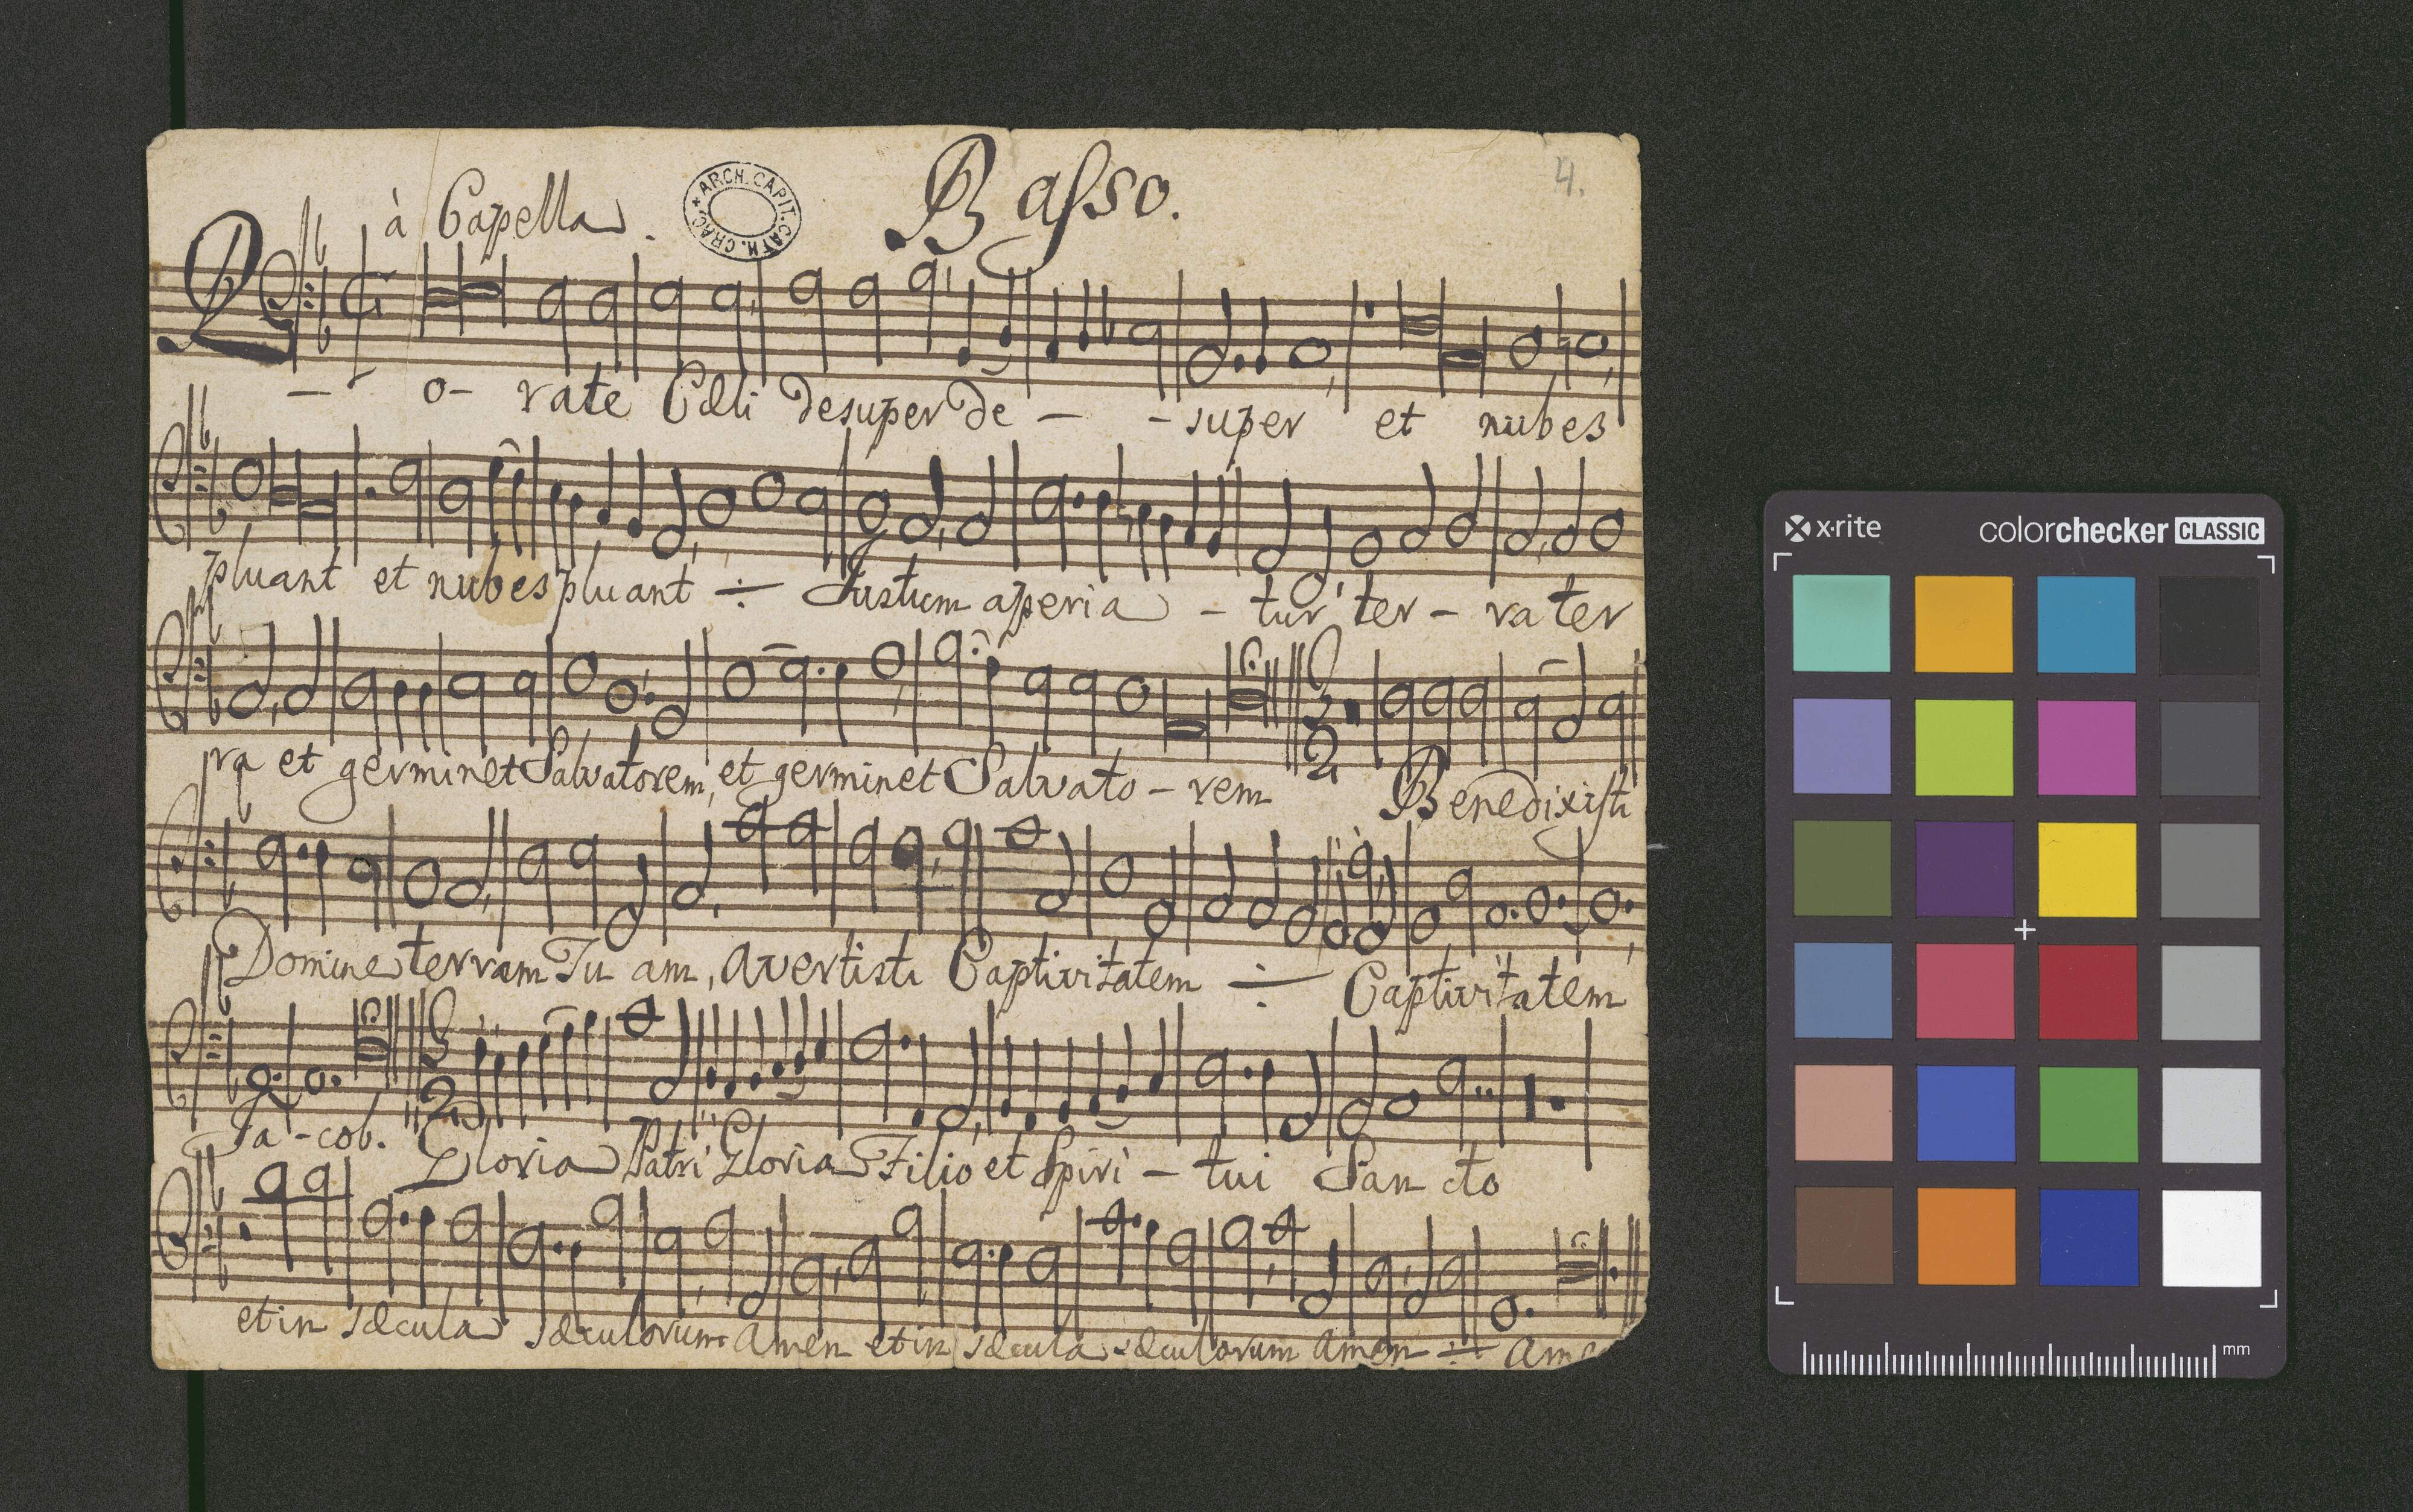 à Capella. Basso. 4.
ARCH. CAPIT. CATH. CRAC.
R - o- rate Cæli desuper de - - super et nubes
pluant et nubes pluant ÷ Justum aperia - tur ter - ra ter
ra et germinet Salvatorem, et germinet Salvato - rem 3 2 Benedixisti
Domine terram Tu am, avertisti Captivitatem ÷ Captivitatem
Ja - cob. 3 2 Gloria Patri Gloria Filio et Spiri - tui San cto
et in sæcula sæculorum Amen et in sæcula sæculorum Amen ÷
x·rite colorchecker CLASSIC
mm